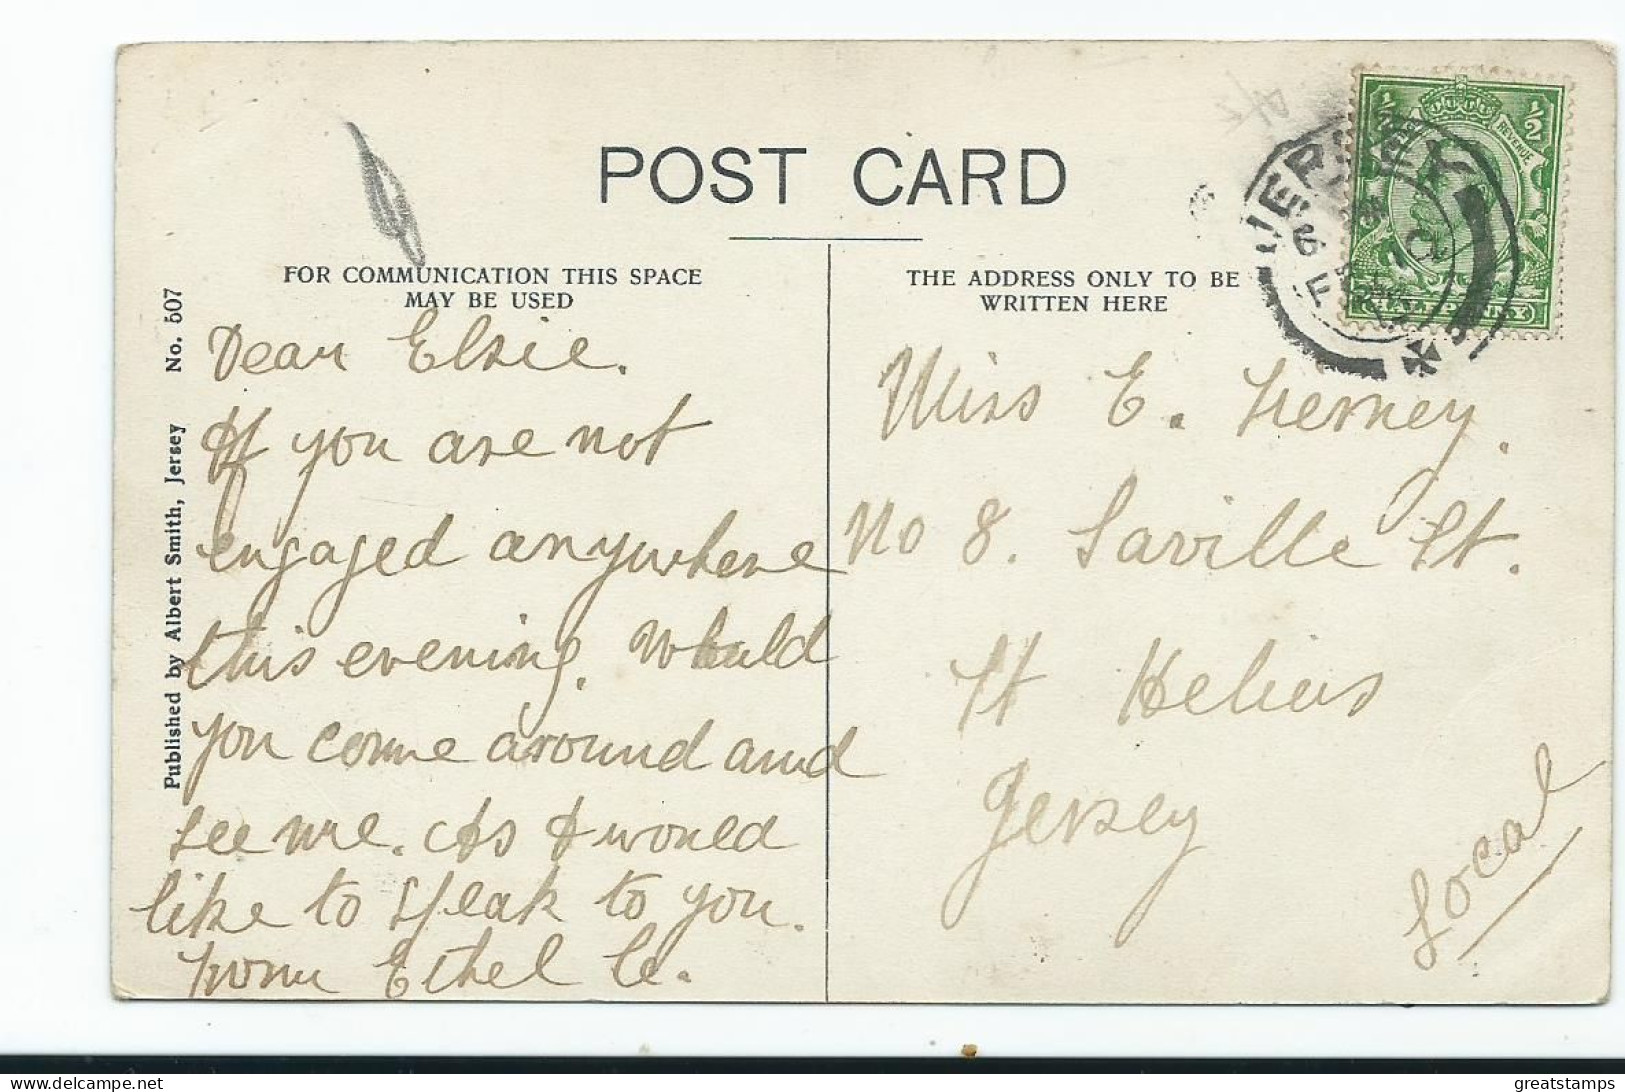 POST CARD
FOR COMMUNICATION THIS SPACE
MAY BE USED
THE ADDRESS ONLY TO BE
WRITTEN HERE
Published by Albert Smith, Jersey No. 507
Dear Elsie.
If you are not
engaged anywhere
this evening. Would
you come around and
see me. As I would
like to speak to you.
from Ethel Le.
Miss E. Tierney.
No 8. Saville St.
St Heliers
Jersey
Local
JERSEY
½ ½
REVENUE
HALFPENNY
Delcampe.net
greatstamps